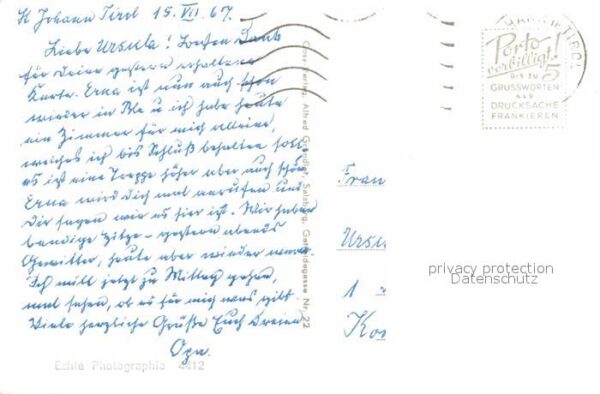 St Johann Tirol 15. VII. 67.
Liebe Ursula! Besten Dank
für Deine gestern erhaltene
Karte. Erna ist nun auch schon
wieder in Me u ich habe heute
ein Zimmer für mich alleine,
welches ich bis Schluß behalten soll
es ist eine Treppe höher aber auch schön
Erna wird dich mal anrufen und
Dir sagen wie es hier ist. Wir haben
bandige Hitze - gestern abends
Gewitter, heute aber wieder warm
Ich will jetzt zu Mittag gehen,
mal sehen, ob es für mich was gibt
Viele herzliche Grüße Euch Dreien
Opa.
Echte Photographie 4412
Cosy-Verlag, Alfred Gründler, Salzburg, Getreidegasse Nr. 22
Porto
verbilligt!
BIS ZU 5
GRUSSWORTEN
ALS
DRUCKSACHE
FRANKIEREN
TIROL
Frau
Ursu
1
privacy protection
Datenschutz